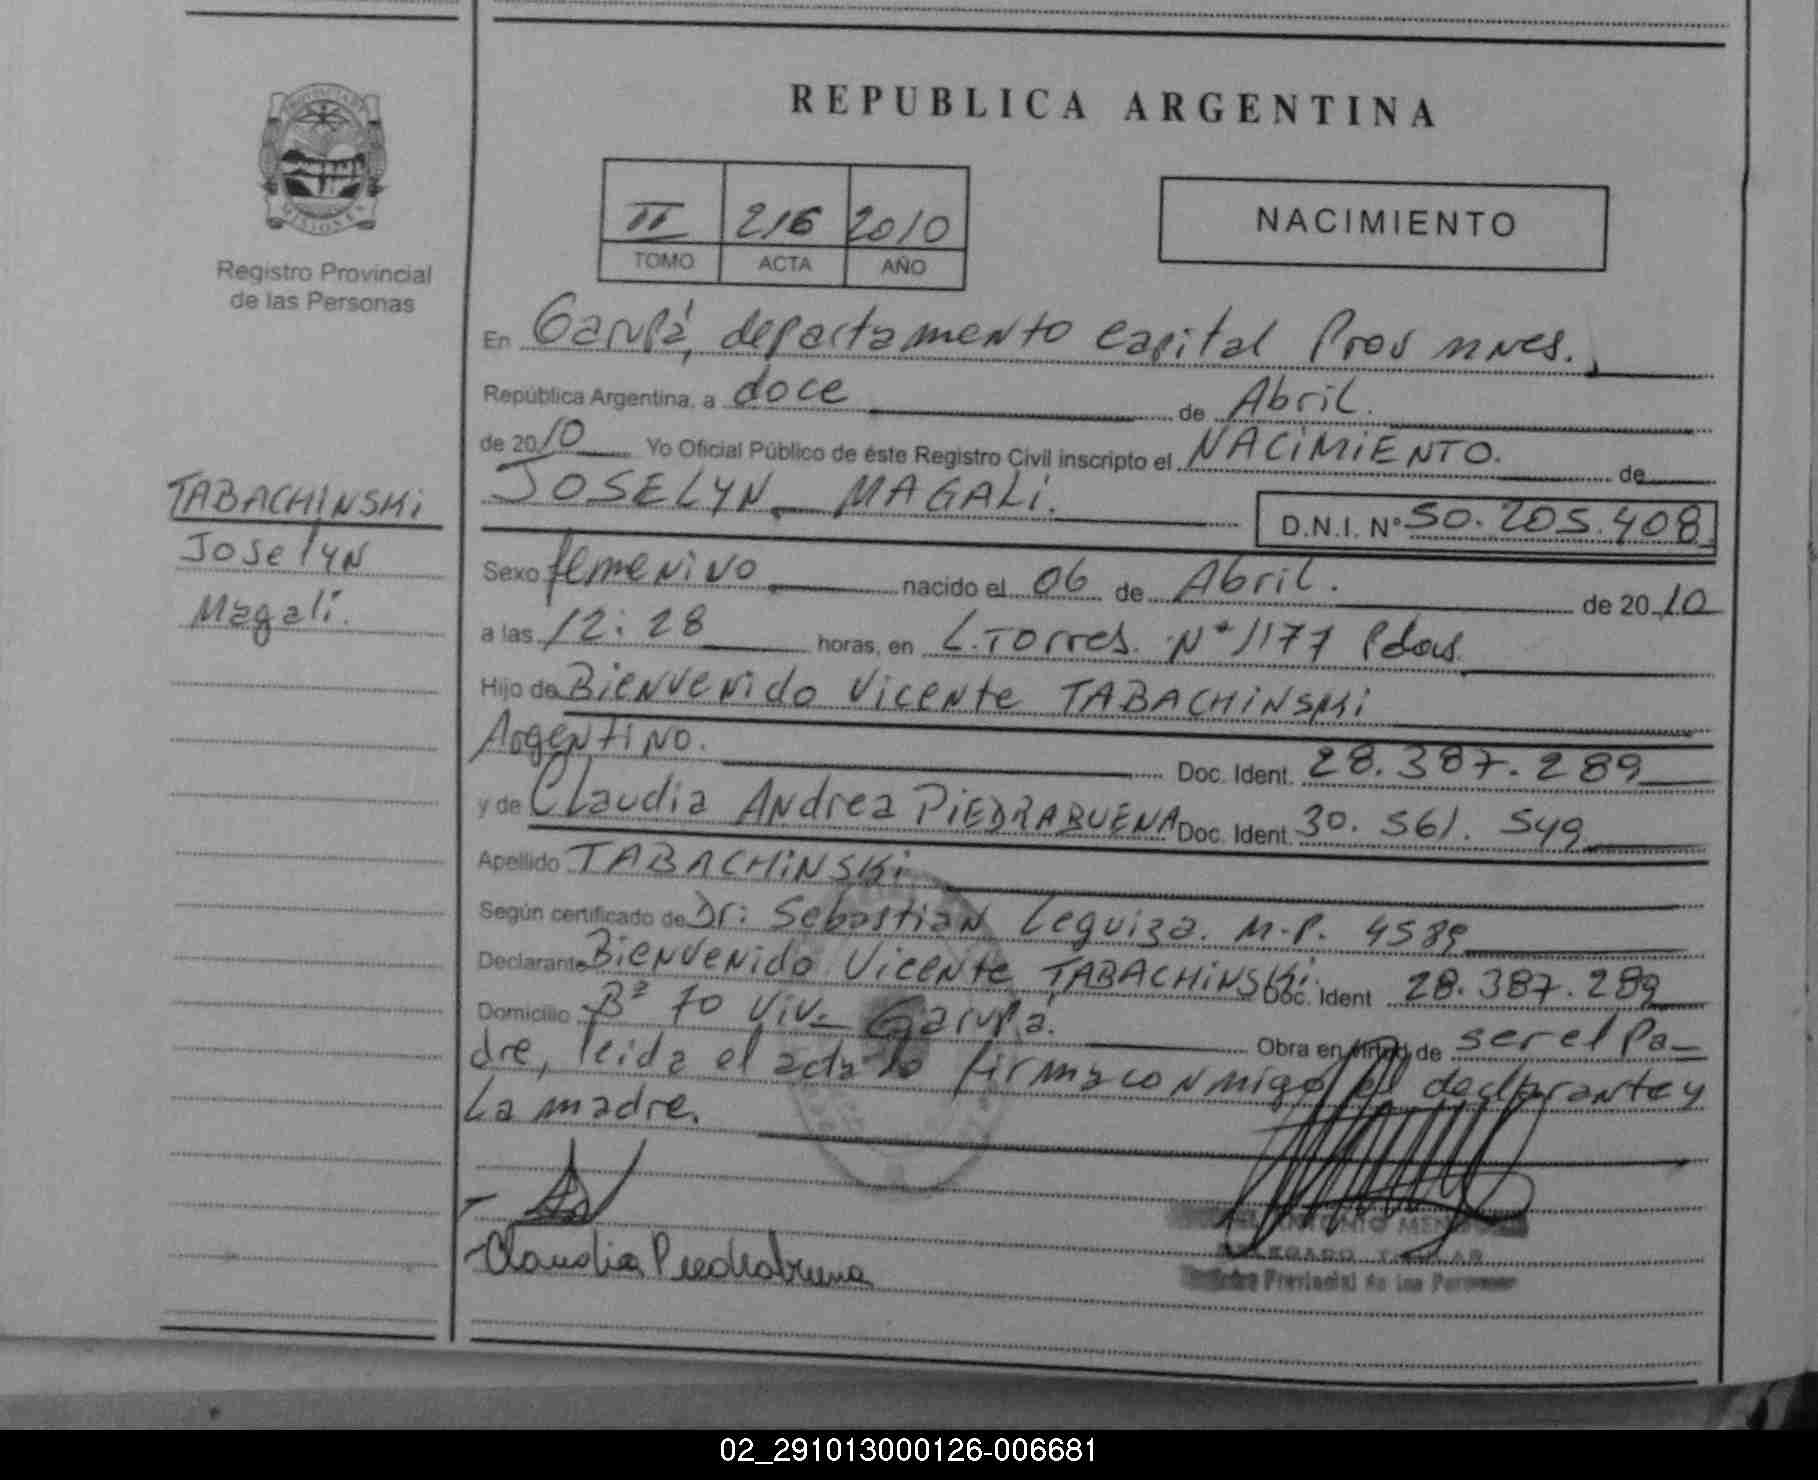 REPUBLICA ARGENTINA
PROVINCIA DE
MISIONES
Registro Provincial
de las Personas
II 216 2010
TOMO ACTA AÑO
NACIMIENTO
En Garupá, departamento Capital Prov mnes.
República Argentina, a doce de Abril.
de 2010 Yo Oficial Público de éste Registro Civil inscripto el NACIMIENTO. de
JOSELYN MAGALI. D.N.I. Nº 50.205.408
TABACHINSKI
Joselyn
Magali.
Sexo femenino nacido el 06 de Abril. de 2010
a las 12:28 horas, en L. Torres. Nº 1177 Pdas.
Hijo de Bienvenido Vicente TABACHINSKI
Argentino. Doc. Ident. 28.387.289
y de Claudia Andrea PIEDRABUENA Doc. Ident. 30.561.549
Apellido TABACHINSKI
Según certificado de Dr: Sebastian Leguiza. M.P. 4589
Declarante Bienvenido Vicente TABACHINSKI. Doc. Ident 28.387.289
Domicilio Bº 70 Viv. Garupá. Obra en virtud de ser el Pa-
dre, leida el acta lo firma conmigo el declarante y
La madre.
Claudia Piedrabuena
ANTONIO
DELEGADO TITULAR
Provincial de las Personas
02_291013000126-006681